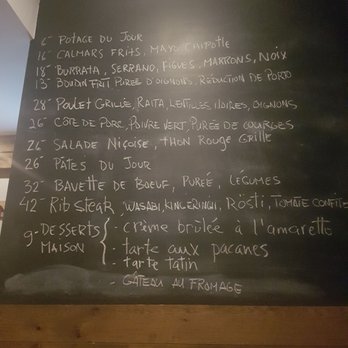 6- POTAGE DU JOUR
16- CALMARS FRITS, MAYO CHIPOTLE
18- BURRATA, SERRANO, FIGUES, MARRONS, NOIX
13- BOUDIN FRIT PURÉE D'OIGNONS, RÉDUCTION DE PORTO
28- POULET GRILLÉ, RAITA, LENTILLES NOIRES, OIGNONS
26- CÔTE DE PORC, POIVRE VERT, PURÉE DE COURGES
26- SALADE NIÇOISE, THON ROUGE GRILLÉ
26- PÂTES DU JOUR
32- BAVETTE DE BOEUF, PURÉE, LÉGUMES
42- RIB STEAK, WASABI, RÖSTI, TOMATE CONFITE
9- DESSERTS MAISON { - crème brûlée à l'amaretto
- tarte aux pacanes
- tarte tatin
- GÂTEAU AU FROMAGE